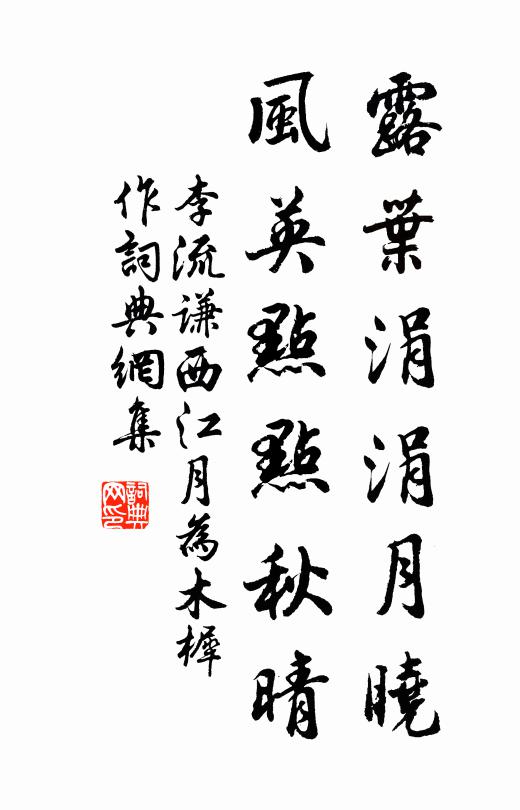 露葉涓涓月曉
風英點點秋晴
李流謙西江月為木樨
作詞典網集
詞典
网印